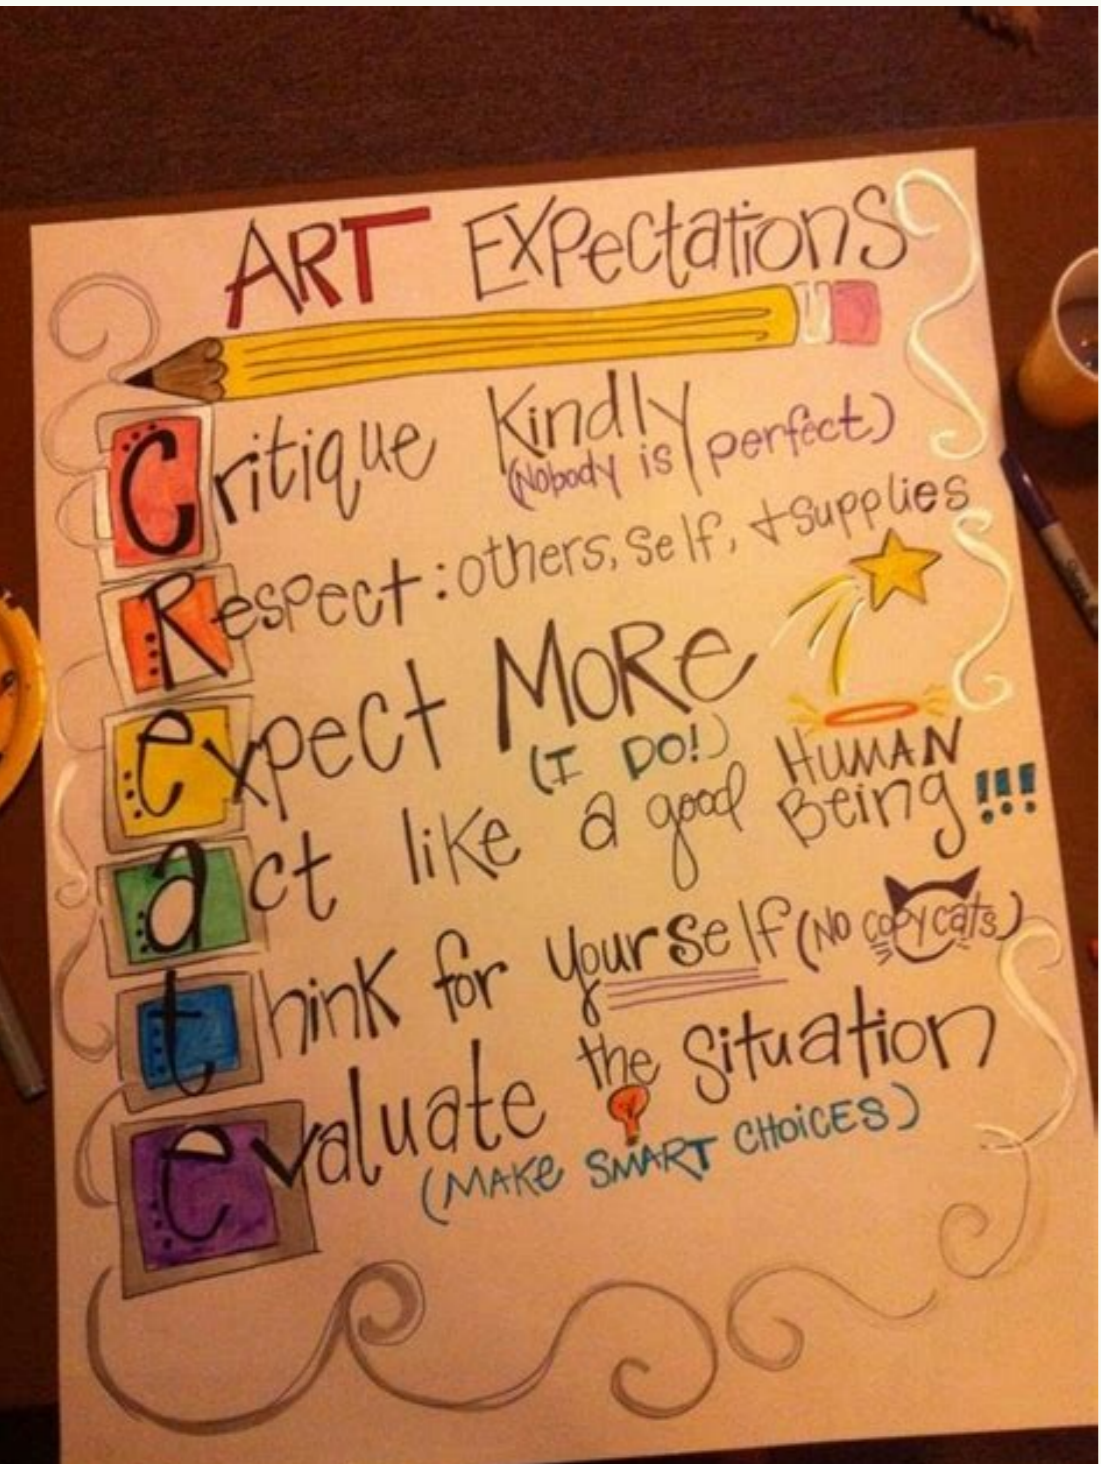 ART Expectations
Critique Kindly
(Nobody is perfect)
Respect: others, self, + supplies
expect MoRe
(I DO!)
act like a good HUMAN Being!!!
think for yourself (No copy cats)
evaluate the situation
(MAKe SMART CHOiCES)
Sharpie